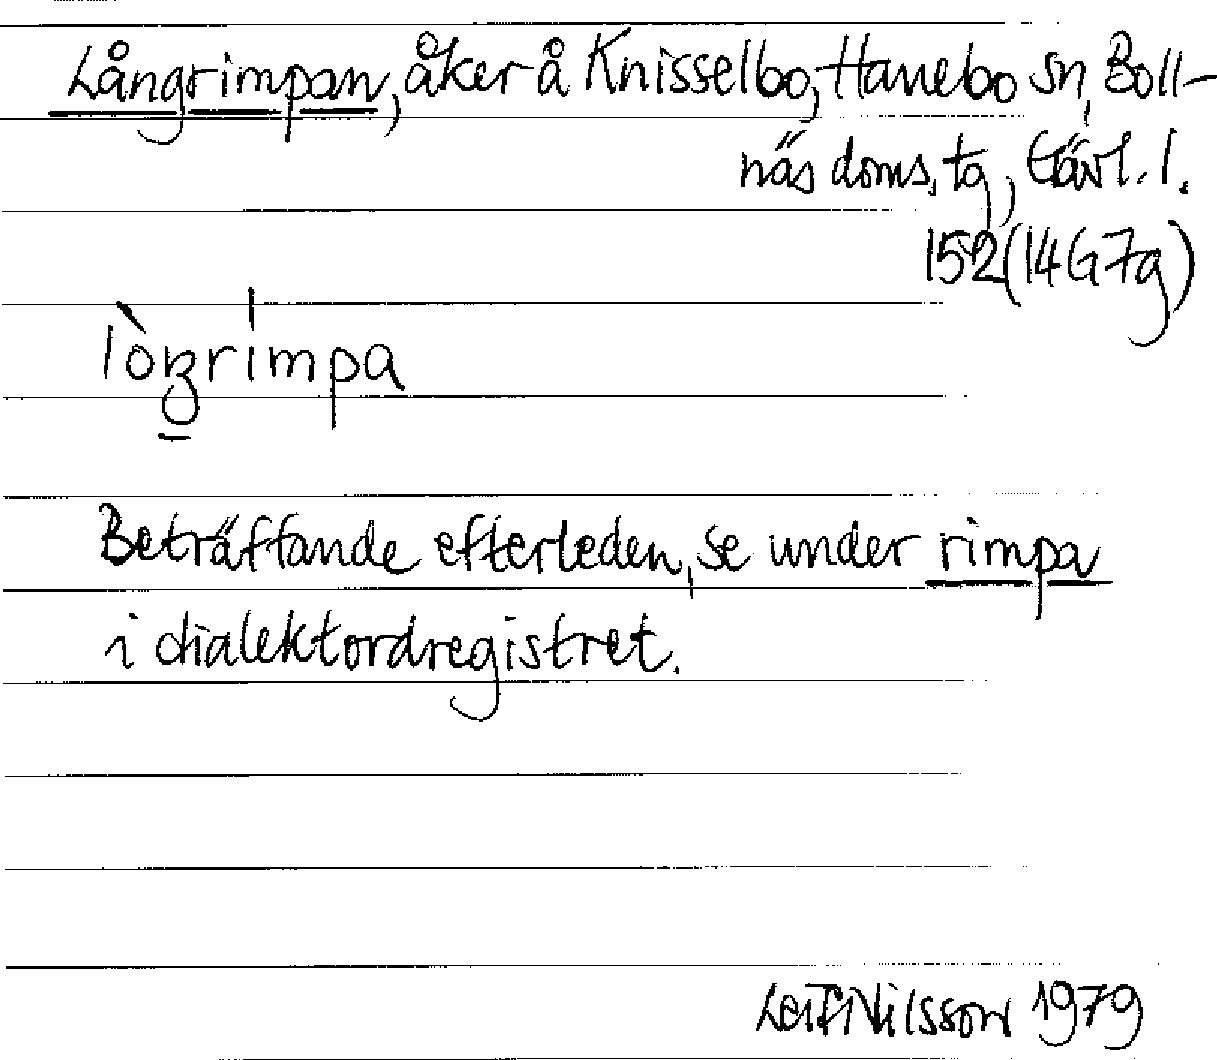 Långrimpan, åker å Knisselbo, Hanebo sn, Boll-
näs doms. tg, Gävl. l.
152 (14G7g)
lòŋrimpa
Beträffande efterleden, se under rimpa
i dialektordregistret.
Leif Nilsson 1979